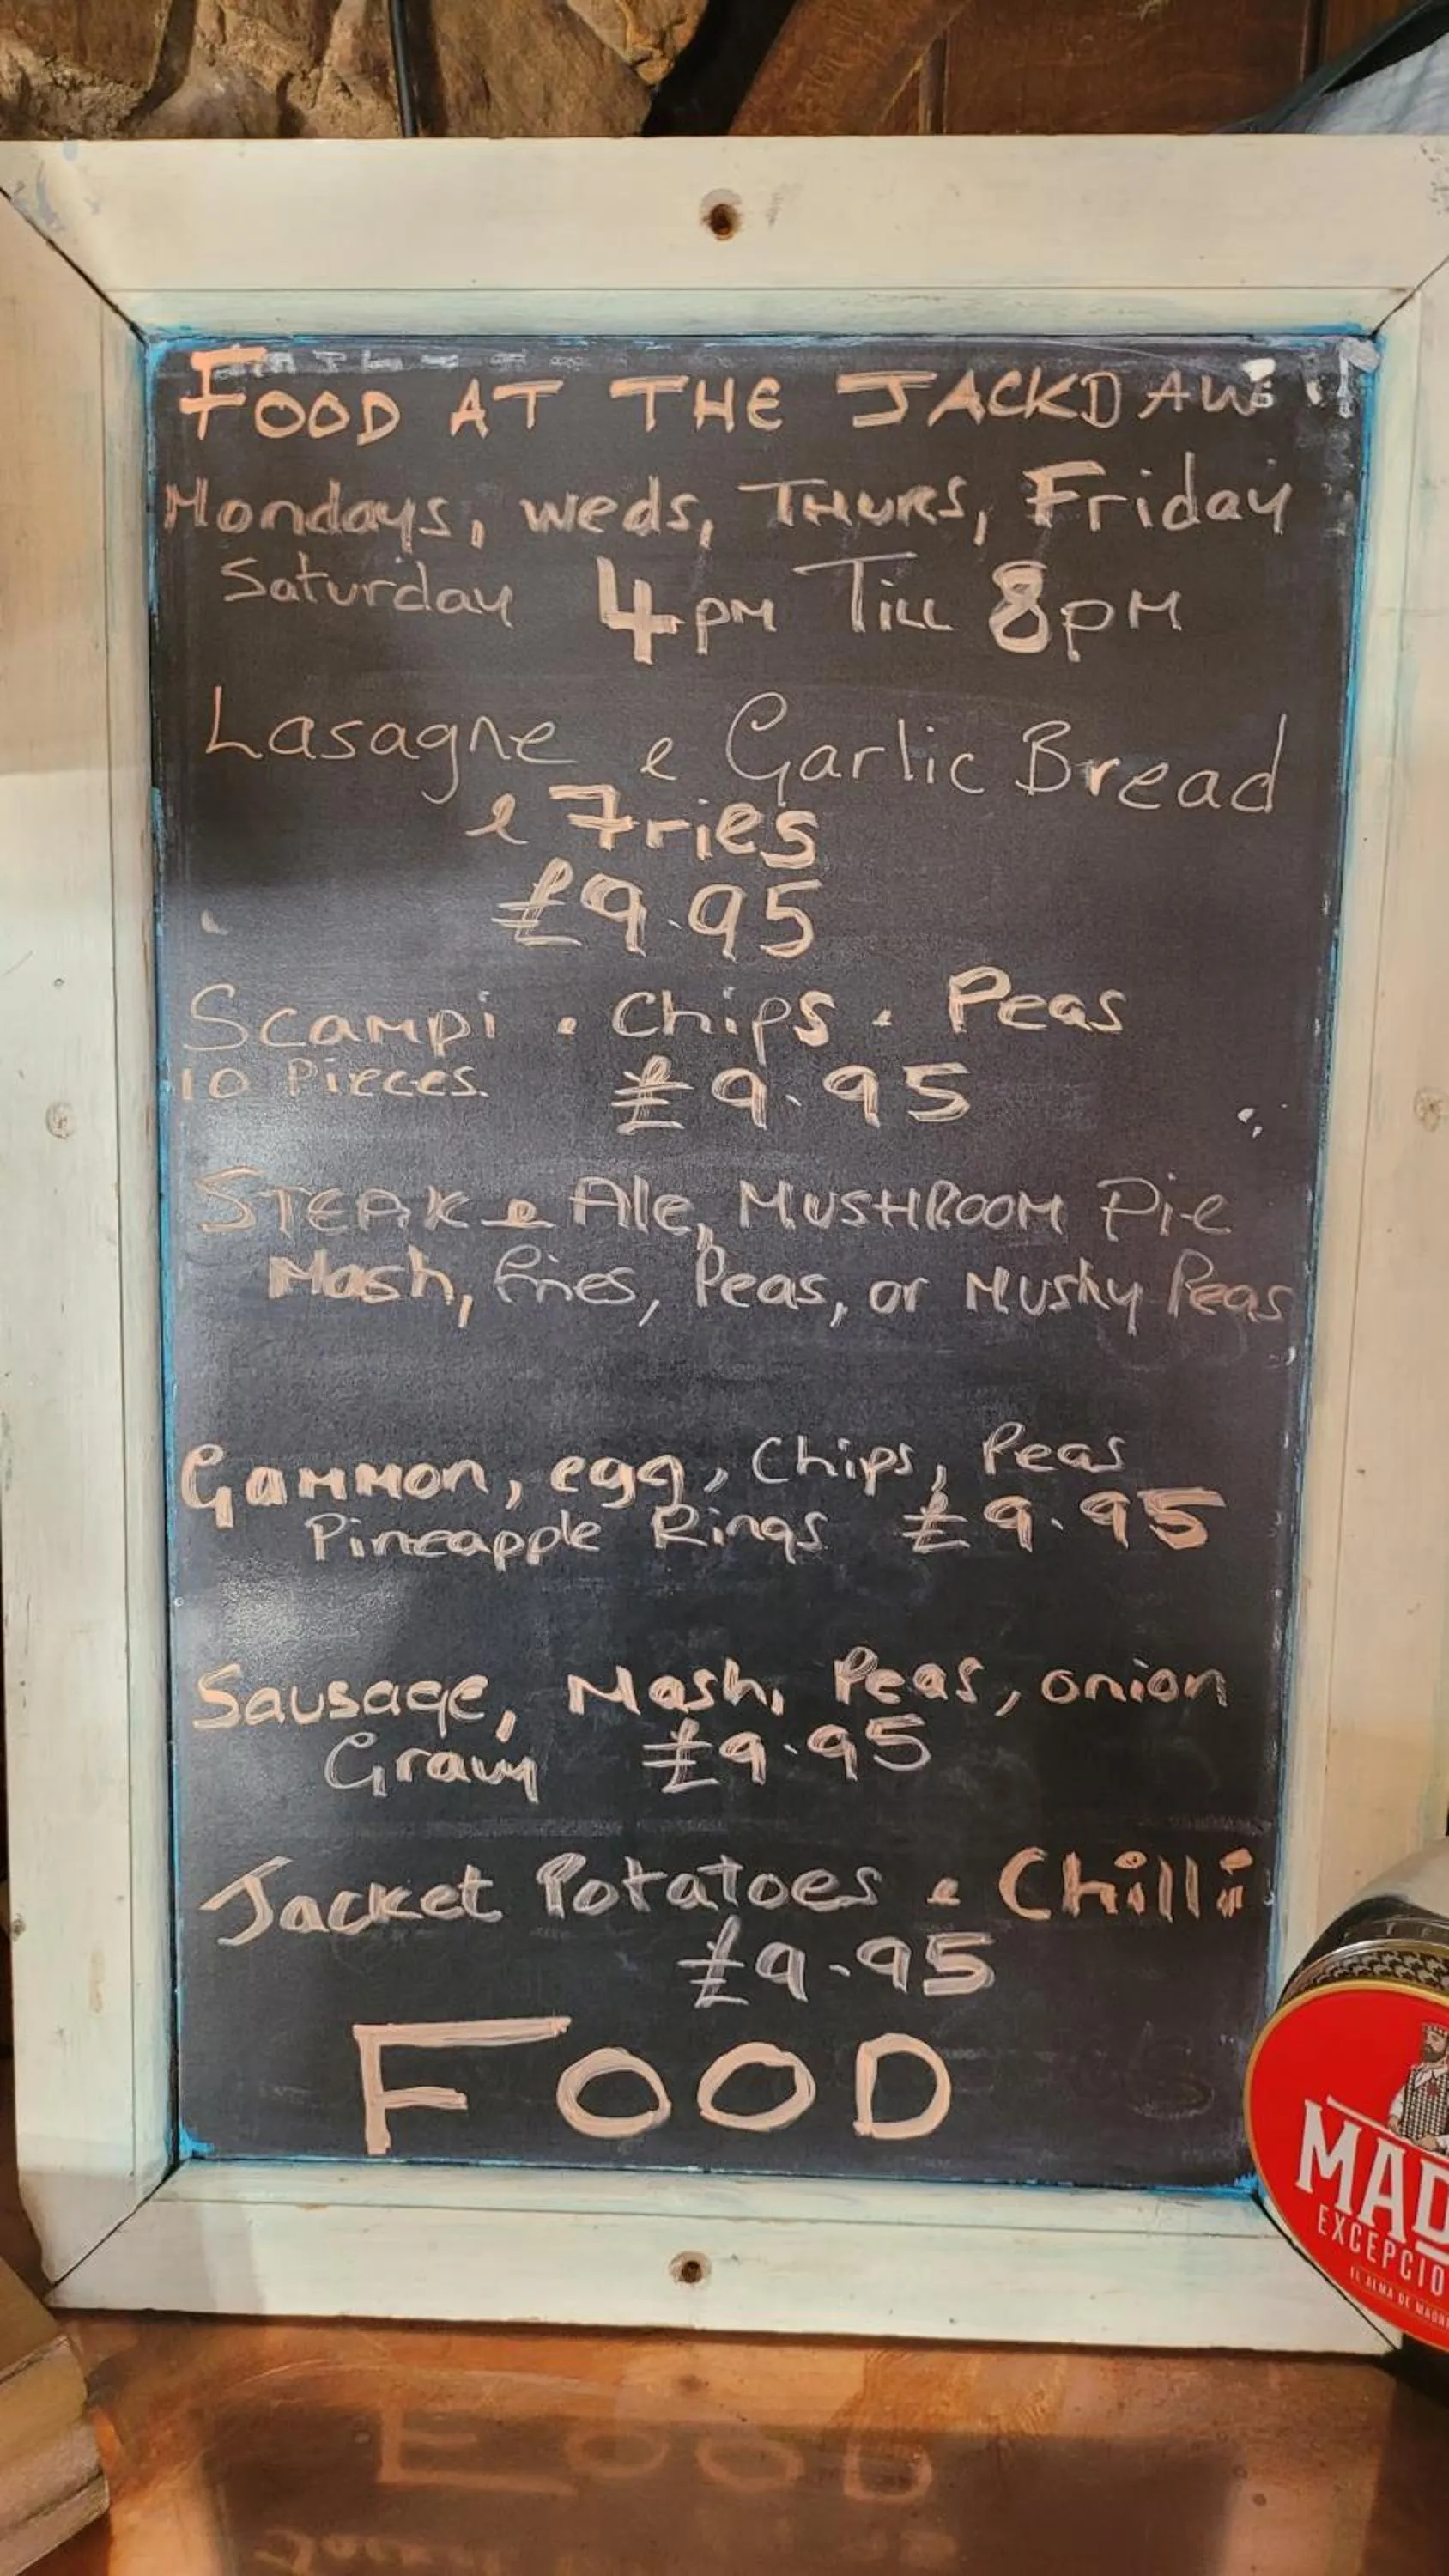 FOOD AT THE JACKDAW
Mondays, weds, THURS, Friday
Saturday 4pm TILL 8pm
Lasagne & Garlic Bread
& Fries
£9.95
Scampi . Chips . Peas
10 Pieces. £9.95
STEAK & Ale, MUSHROOM Pie
Mash, fries, Peas, or Mushy Peas
Gammon, egg, Chips, Peas
Pineapple Rings £9.95
Sausage, Mash, Peas, onion
Gravy £9.95
Jacket Potatoes & Chilli
£9.95
FOOD
MAD
EXCEPCIO
EL ALMA DE MADR